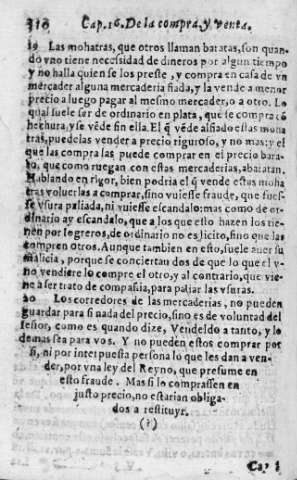 310 Cap.16. De la compra, y venta.
19 Las mohatras, que otros llaman baratas, son quan-
do vno tiene necessidad de dineros por algun tiempo
y no halla quien se los preste, y compra en casa de vn
mercader alguna mercaderia fiada, y la vende a menor
precio a luego pagar al mesmo mercader, o a otro. Lo
qual suele ser de ordinario en plata, que se compra cō
hechura, y se vēde sin ella. El q̄ vēde al fiado estas moha
tras, puedelas vender a precio riguroso, y no mas: y el
que las compra las puede comprar en el precio bara-
to, que como ruegan con estas mercaderias, abaratan.
Hablando en rigor, bien podria el q̄ vende estas moha
tras voluerlas a comprar, sino vuiesse fraude, que fues-
se vsura paliada, ni vuiesse escandalo: mas como de or-
dinario ay escandalo, que a los que esto hazen los tie-
nen por logreros, de ordinario no es licito, sino que las
compren otros. Aunque tambien en esto, suele auer su
malicia, porque se conciertan dos de que lo que el v-
no vendiere lo compre el otro, y al contrario, que vie-
ne a ser trato de compañia, para paliar las vsuras.
20 Los corredores de las mercaderias, no pueden
guardar para si nada del precio, sino es de voluntad del
señor, como es quando dize, Vendeldo a tanto, y lo
demas sea para vos. Y no pueden estos comprar por
si, ni por interpuesta persona lo que les dan a ven-
der, por vna ley del Reyno, que presume en
esto fraude. Mas si lo comprassen en
justo precio, no estarian obliga-
dos a restituyr.
(?)
Cap. 1